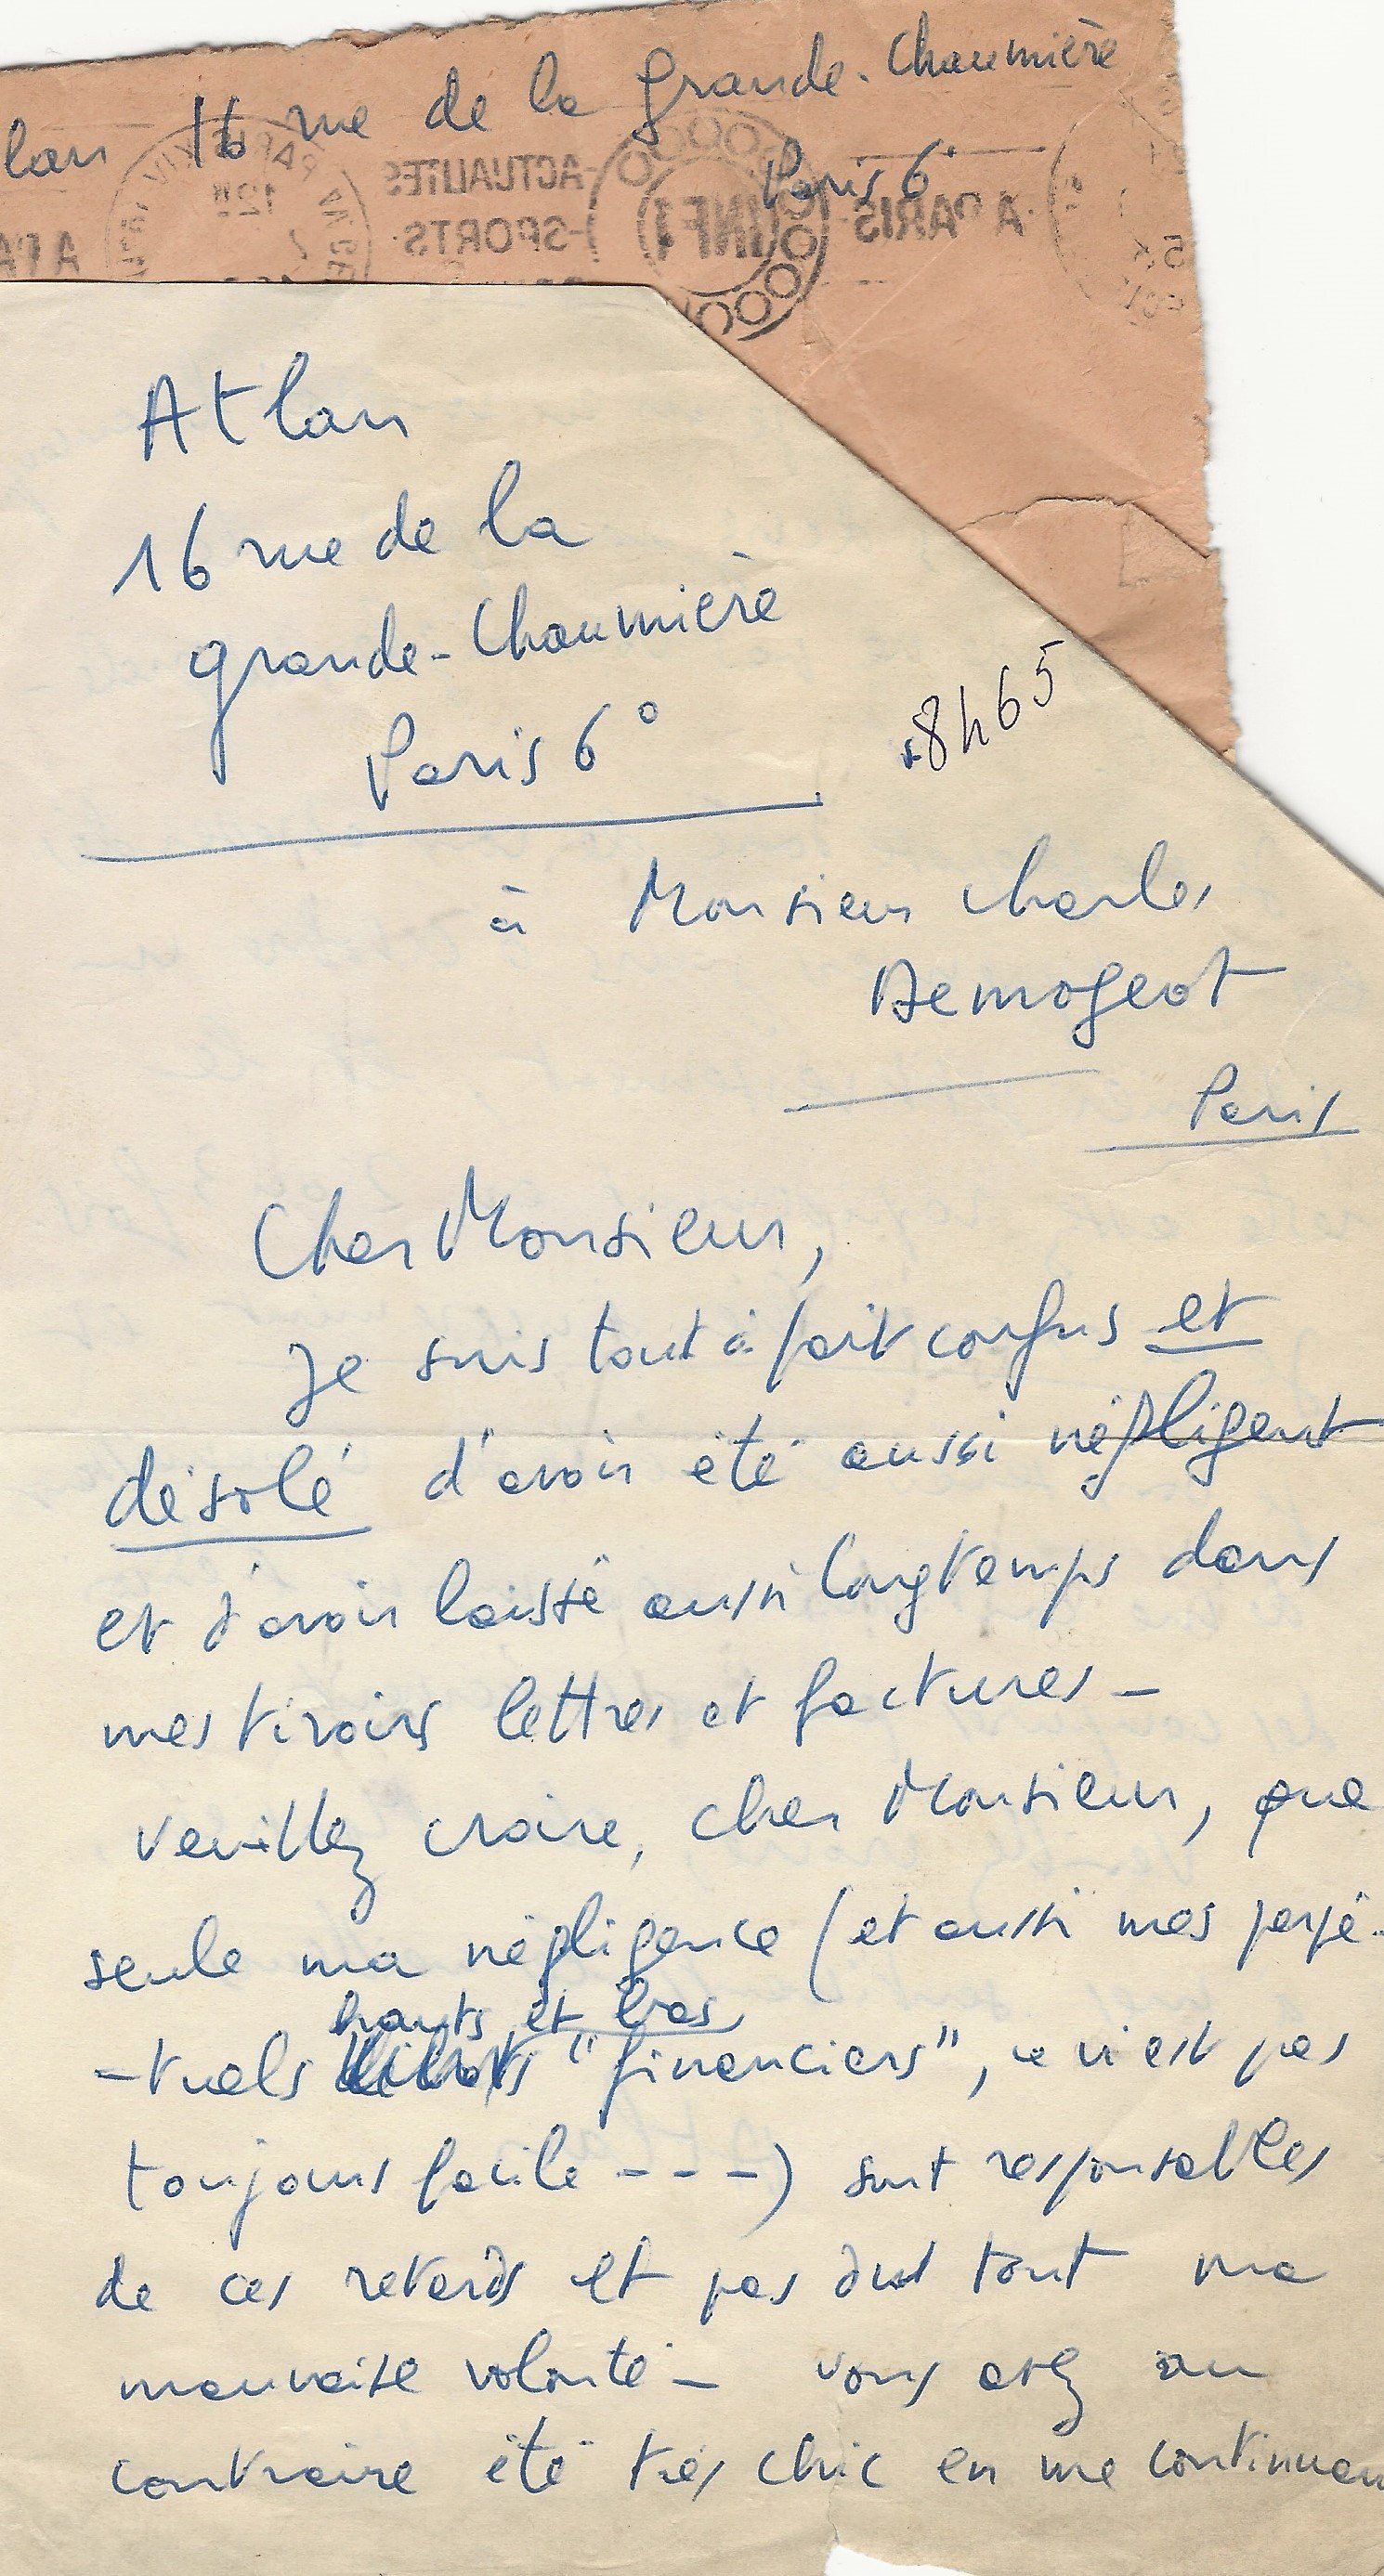 lan 16 rue de la Grande-Chaumière
Paris 6°
ACTUALITÉS-
SPORTS-
INF1
A PARIS
12H
A PA
Atlan
16 rue de la
grande-Chaumière
Paris 6°
8h65
à Monsieur Charles
Demogeot
Paris
Cher Monsieur,
Je suis tout à fait confus et
désolé d'avoir été aussi négligent
et d'avoir laissé aussi longtemps dans
mes tiroirs lettres et factures –
veuillez croire, cher Monsieur, que
seule ma négligence (et aussi mes perpé-
hauts et bas
-tuels "financiers", ce n'est pas
toujours facile - - -) sont responsables
de ces retards et pas dut tout ma
mauvaise volonté – vous avez au
contraire été très chic en me continuan